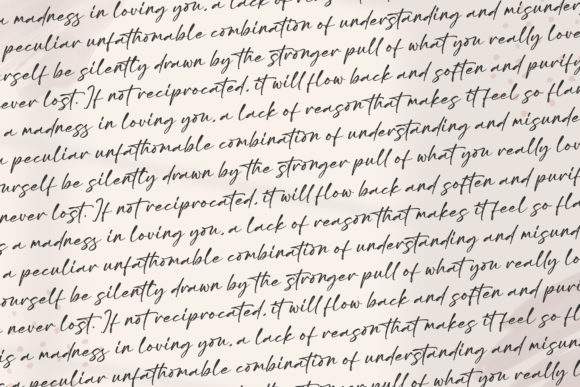 a madness in loving you, a lack of
peculiar unfathomable combination of understanding and misunder
urself be silently drawn by the stronger pull of what you really love
ever lost. If not reciprocated, it will flow back and soften and purify
a madness in loving you, a lack of reason that makes it feel so flaw
a peculiar unfathomable combination of understanding and misunde
urself be silently drawn by the stronger pull of what you really lov
never lost. If not reciprocated, it will flow back and soften and purif
s a madness in loving you, a lack of reason that makes it feel so fla
a peculiar unfathomable combination of understanding and misund
ourself be silently drawn by the stronger pull of what you really lo
never lost. If not reciprocated, it will flow back and soften and puri
is a madness in loving you, a lack of reason that makes it feel so fl
a peculiar unfathomable combination of understanding and misun
pull of what you really l